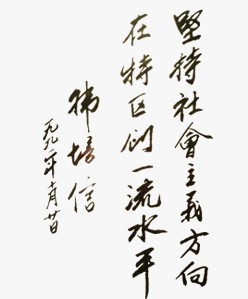 堅持社會主義方向
在特区创一流水平
韩培信
一九九一年十月廿日